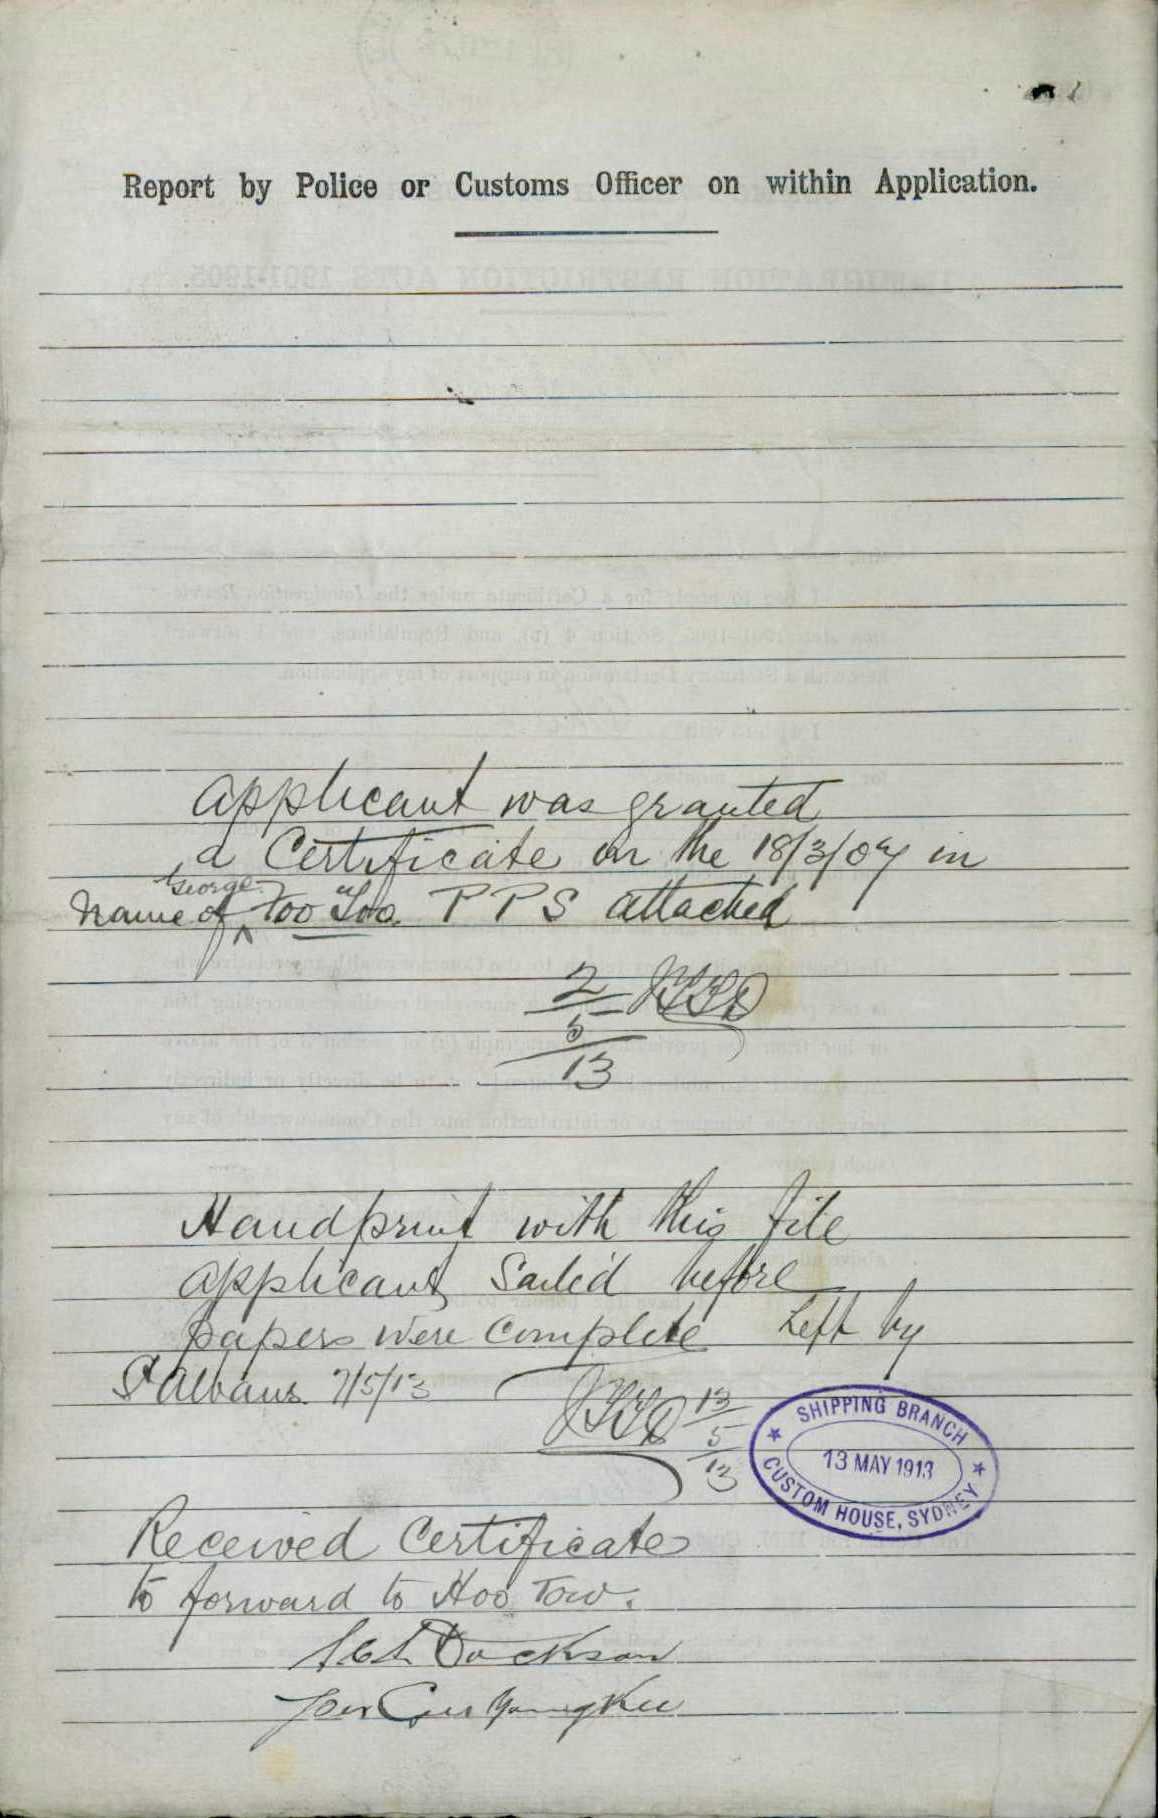 Report by Police or Customs Officer on within Application.
Applicant was granted
a Certificate on the 18/3/07 in
name of George Too Too. PPS attached
2
5
13
Handprint with this file
applicant Sailed before
papers were complete Left by
St Albans 7/5/13
13
5
13
SHIPPING BRANCH
13 MAY 1913
CUSTOM HOUSE, SYDNEY
Received Certificate
to forward to Hoo Tow.